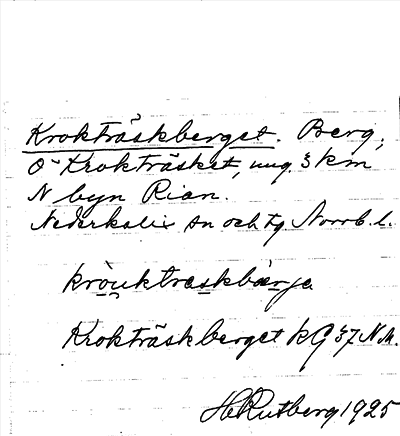 Krokträskberget. Berg,
O Krokträsket, ung. 3 km
N byn Rian.
Nederkalix sn och tg, Norrb. l.
kròuktraskbærje
Krokträskberget kg 37 N.M.
H Rutberg 1925